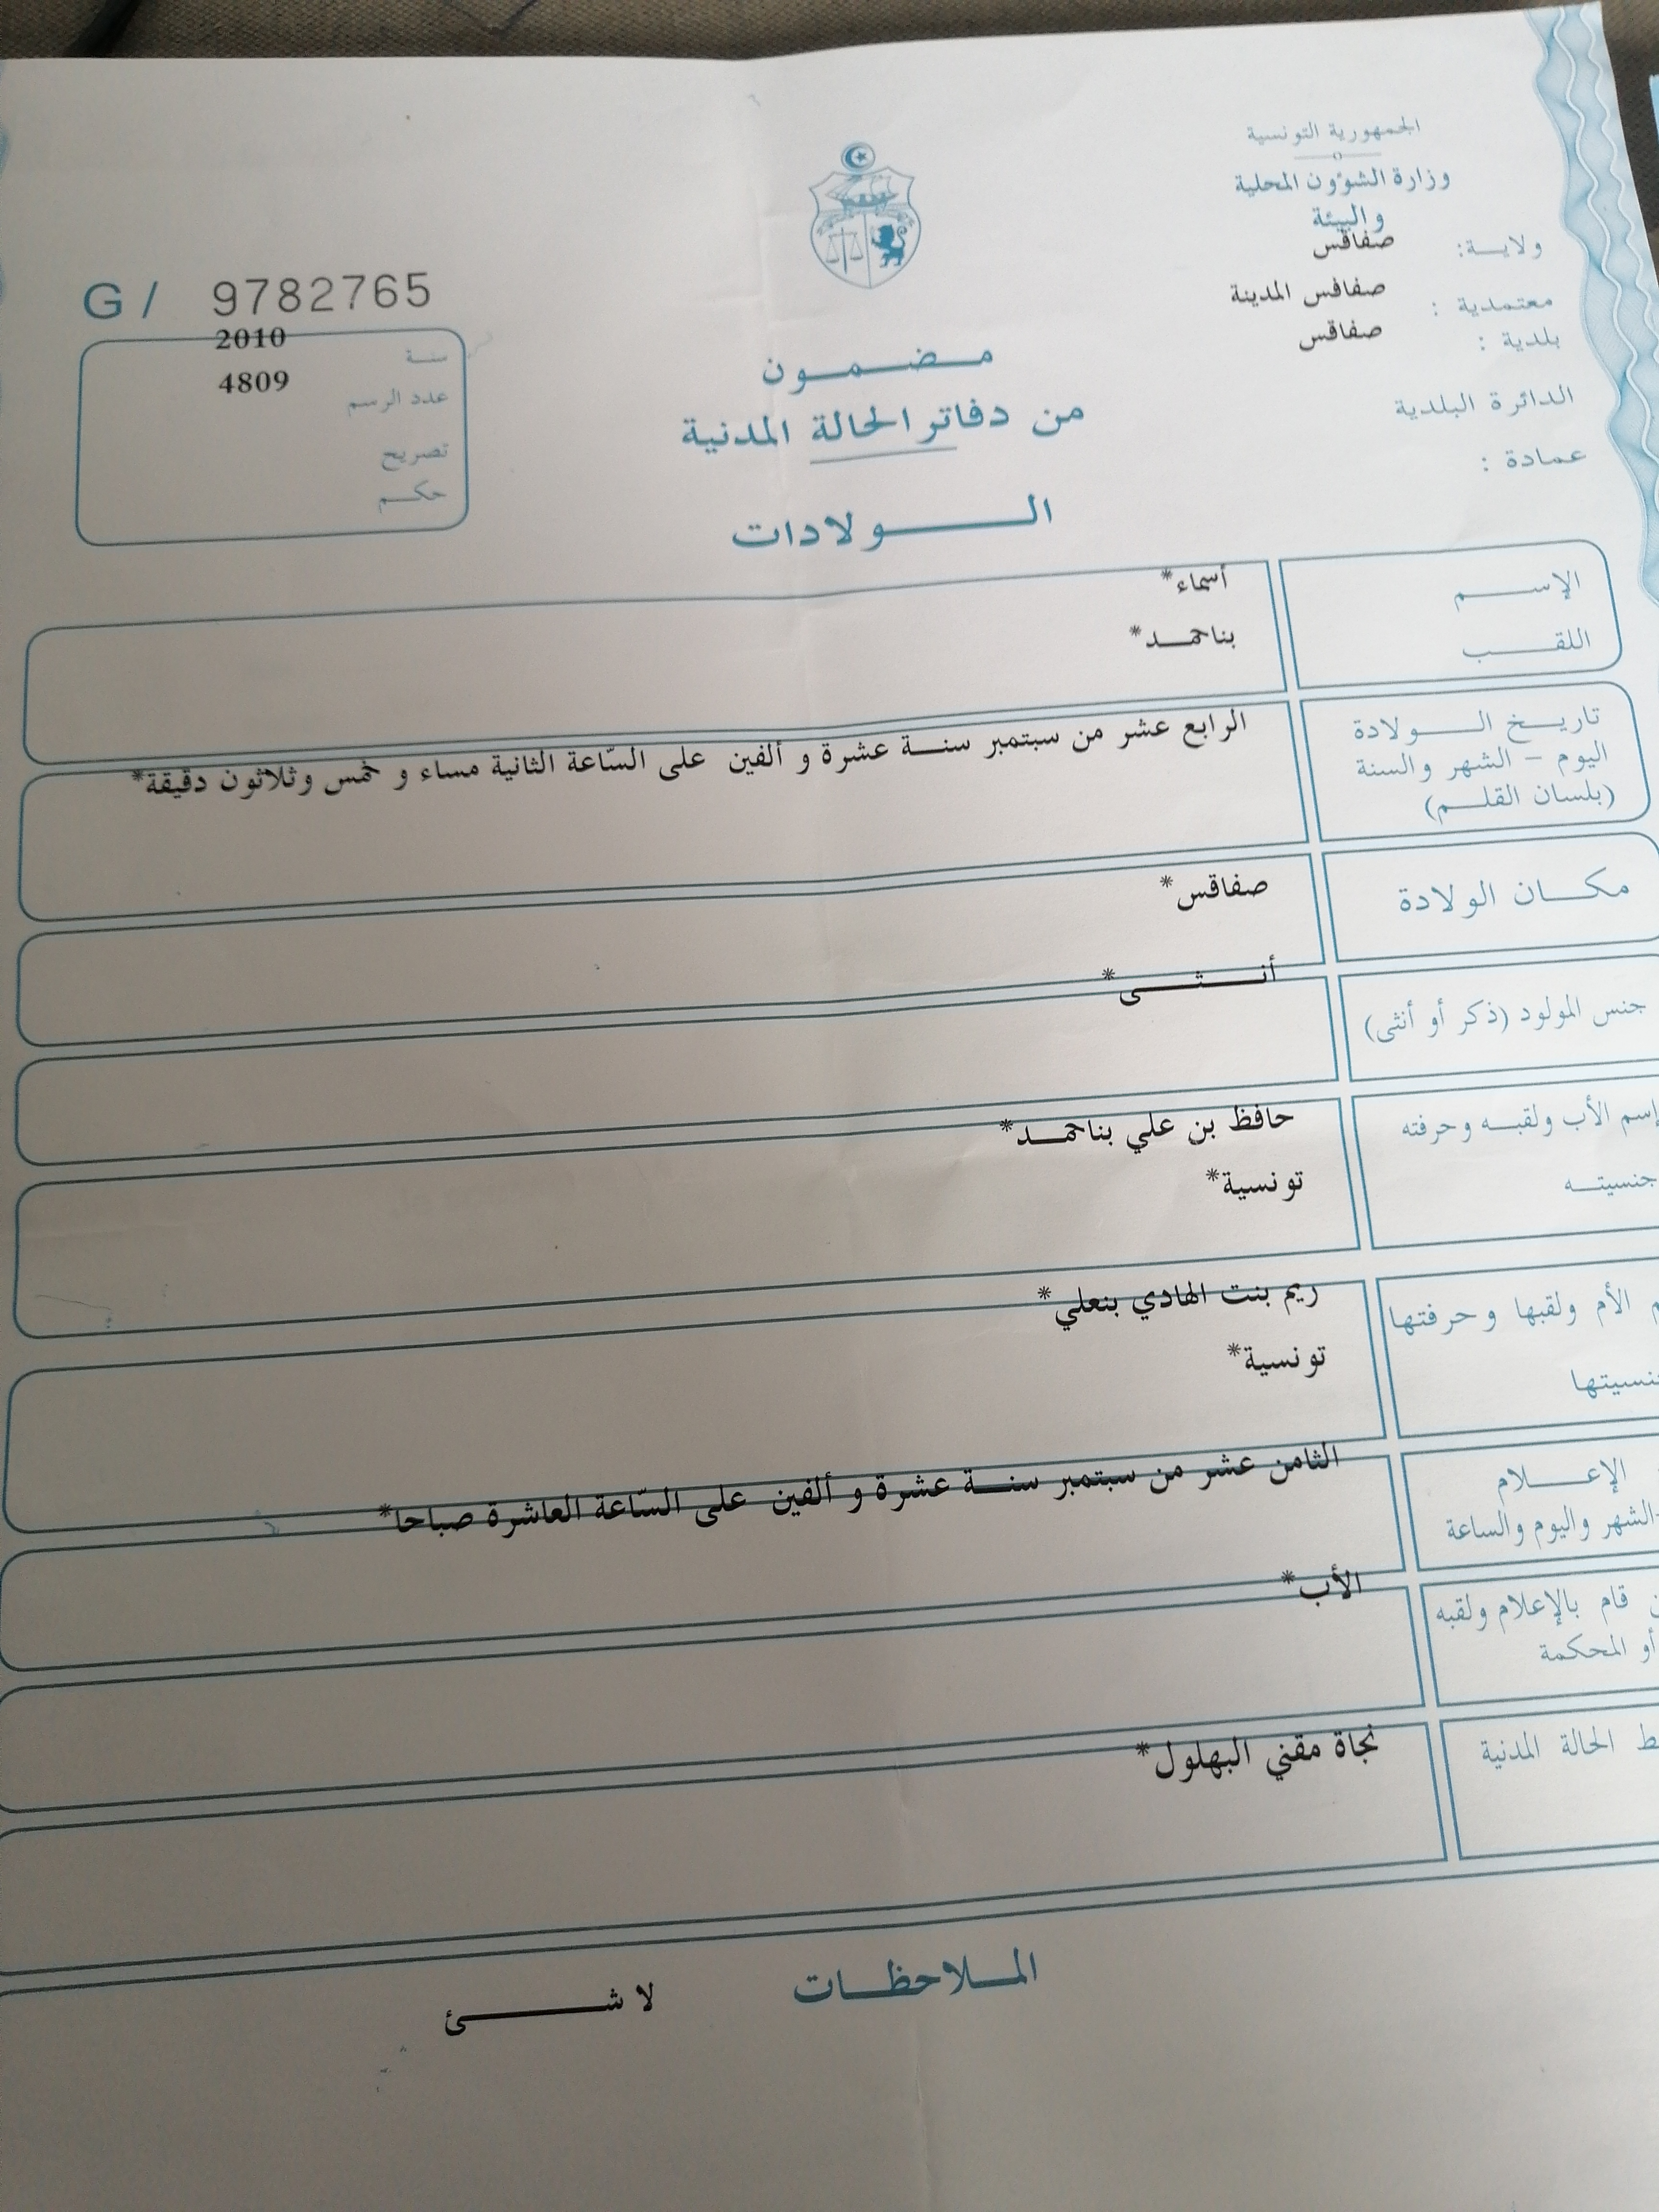 الجمهورية التونسية
وزارة الشؤون المحلية
والبيئة
ولاية: صفاقس
معتمدية : صفاقس المدينة
بلدية : صفاقس
الدائرة البلدية
عمادة :
G / 9782765
سنة 2010
عدد الرسم 4809
تصريح
حكم
مضمون
من دفاتر الحالة المدنية
الولادات
الإسم أسماء*
اللقب بناحمد*
تاريخ الولادة
اليوم - الشهر والسنة
(بلسان القلم)
الرابع عشر من سبتمبر سنة عشرة و ألفين على السّاعة الثانية مساء و خمس وثلاثون دقيقة*
مكان الولادة صفاقس*
جنس المولود (ذكر أو أنثى) أنثى*
إسم الأب ولقبه وحرفته حافظ بن علي بناحمد*
جنسيته تونسية*
الأم ولقبها وحرفتها ريم بنت الهادي بنعلي*
تونسية*
الإعلام
الشهر واليوم والساعة
الثامن عشر من سبتمبر سنة عشرة و ألفين على السّاعة العاشرة صباحا*
قام بالإعلام ولقبه
أو المحكمة
الأب*
الحالة المدنية نجاة مقني البهلول*
الملاحظات لا شئ